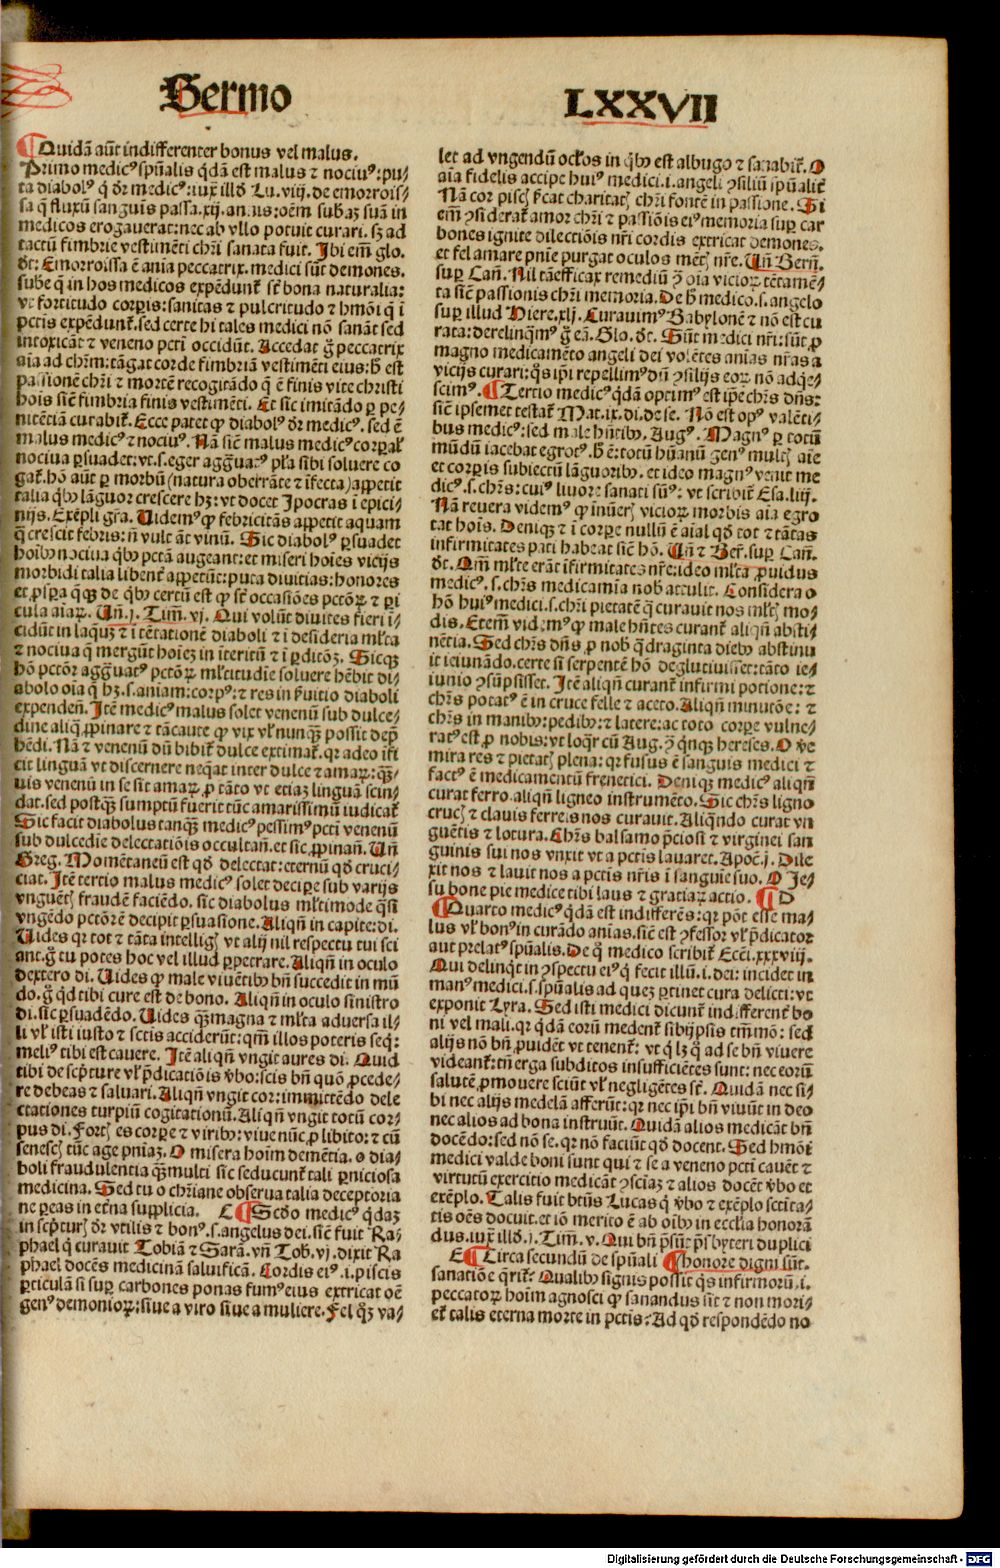 Sermo
LXXVII
¶ Quidā aūt indifferenter bonus vel malus.
Primo medicꝰ spūalis qͥdā est malus ⁊ nociuꝰ: pu⸗
ta diabolꝰ q̇ dr̄ medicꝰ: iux̄ illd̓ Lu. viij. de emorrois⸗
sa q̄ fluxū sanguīs passa .xij. annis: oēm subāz suā in
medicos erogauerat: nec ab vllo potuit curari. sꝫ ad
tactū fimbrie vestimēti chr̄i sanata fuit. Ibi em̄ glo.
dr̄: Emorroissa ē aīa peccatrix. medici sūt demones.
sube q̄ in hos medicos expēdunt᷑ st̄ bona naturalia:
vt fortitudo corpꝑis: sanitas ⁊ pulcritudo ⁊ hmōi q̄ ī
pctīs expēdunt᷑. sed certe hi tales medici nō sanāt sed
intoxicāt ⁊ veneno pcti occidūt. Accedat g̊ peccatrix
aīa ad chr̄m: tāgat corde fimbriā vestimēti eius: h̓ est
passionē chr̄i ⁊ mortē recogitādo q̄ ē finis vite christi
hoīs sic̄ fimbria finis vestimēti. Et sic imitādo ꝑ pe⸗
nitētiā curabit᷑. Ecce patet ꝙ diabolꝰ dr̄ medicꝰ. sed ē
malus medicꝰ ⁊ nociuꝰ. Nā sic̄ malus medicꝰ corꝑal᷑
nociua ꝑsuadet: vt .s. eger aggͣuatꝰ pl̓a sibi soluere co
gat᷑. hō aūt ꝑ morbū (natura oberrāte ⁊ īfecta) appetit
talia qͥbꝫ lāguor crescere hꝫ: vt docet Ipocras ī epici⸗
nijs. Exēpli gr̄a. Uidemꝰ ꝙ febricitās appetit aquam
q̄ crescit febris: n̄ vult āt vinū. Sic diabolꝰ ꝑsuadet
hoībꝫ nociua qͥbꝫ pctā augeant: et miseri hoīes vicijs
morbidi talia libent᷑ appetūt: puta diuitias: honores
et ꝓspͣa q̄qꝫ de qͥbꝫ certū est ꝙ st̄ occasiōes pctōꝝ ⁊ ꝑi
cula aīaꝝ. Un̄ .j. Tim̄. vj. Qui volūt diuites fieri ī⸗
cidūt in laqꝰꝫ ⁊ ī tētationē diaboli ⁊ ī desideria ml̓ta
⁊ nociua q̄ mergūt hoīez in īteritū ⁊ ī ꝑditōꝫ. Sicqꝫ
hō pctōr aggͣuatꝰ pctōꝝ ml̓titudīe soluere hēbit di⸗
abolo oīa q̄ hꝫ .s. aniam: corpꝰ: ⁊ res in ẜuitio diaboli
expenden̄. Itē medicꝰ malus solet venenū sub dulce⸗
dine aliq̄ ꝓpinare ⁊ tācaute ꝙ vix vl̓ nunqꝫ̄ possit dep̄
hēdi. Nā ⁊ venenū dū bibit᷑ dulce extimat᷑. qr adeo īfi
cit linguā vt discernere neqͣat inter dulce ⁊ amaꝝ: qꝫ̄⸗
uis venenū in se sit amaꝝ. ꝓ tāto vt etiaꝫ linguā scin⸗
dat. sed postqꝫ̄ sumptū fuerit tūc amarissimū iudicat᷑
Sic facit diabolus tanqꝫ̄ medicꝰ pessimꝰ pcti venenū
sub dulcedīe delectatiōis occultan̄. et sic ꝓpinan̄. Un̄
Greg. Momētaneū est qd̓ delectat: eternū qd̓ cruci⸗
ciat. Itē tertio malus medicꝰ solet deciꝑe sub varijs
vnguēt̓ fraudē faciēdo. sic̄ diabolus ml̓timode q̄si
vngēdo pctōrē decipit ꝑsuasione. Aliqn̄ in capite: di.
Uides qr tot ⁊ tāta intelligis vt alij nil respectu tui sci
ant. g̊ tu potes hoc vel illud ꝑpetrare. Aliqn̄ in oculo
dextero di. Uides ꝙ male viuētibꝫ bn̄ succedit in mū
do. g̊ qd̓ tibi cure est de bono. Aliqn̄ in oculo sinistro
di. sic̄ ꝑsuadēdo. Uides qꝫ̄magna ⁊ ml̓ta aduersa il⸗
li vl̓ isti iusto ⁊ sctīs acciderūt: qm̄ illos poteris seqͥ:
meliꝰ tibi est cauere. Itē aliqn̄ vngit aures di. Quid
tibi de scp̄ture vl̓ p̄dicatiōis v̓bo: scis bn̄ quō ꝓcede⸗
re debeas ⁊ saluari. Aliqn̄ vngit cor: immittēdo dele
ctationes turpiū cogitationū. Aliqn̄ vngit totū cor⸗
pus di. Fortis es corꝑe ⁊ viribꝫ: viue nūc ꝓ libito: ⁊ cū
senescis tūc age pn̄iaꝫ. O misera hoīm demētia. o dia⸗
boli fraudulentia qꝫ̄multi sic seducunt᷑ tali ꝑniciosa
medicina. Sed tu o chr̄iane obserua talia deceptoria
ne ꝑeas in etn̄a supplicia. C ¶ Scd̓o medicꝰ qͥdaꝫ
in scpturis dr̄ vtilis ⁊ bonꝰ .s. angelus dei. sic̄ fuit Ra⸗
phael q̇ curauit Tobiā ⁊ Sarā. vn̄ Tob. vj. dixit Ra
phael docēs medicinā saluificā. Cordis eiꝰ .i. piscis
ꝑticulā si suꝑ carbones ponas fumꝰ eius extricat oē
genꝰ demonioꝝ: siue a viro siue a muliere. Fel qꝫ va⸗
let ad vngendū oclos in qͥbꝫ est albugo ⁊ sanabit᷑. O
aīa fidelis accipe huiꝰ medici .i. angeli ꝯsiliū spūalit᷑
Nā cor piscis s̓cat charitatis chr̄i fontē in passione. Si
em̄ ꝯsiderat᷑ amor chr̄i ⁊ passiōis eiꝰ memoria suꝑ car
bones ignite dilectiōis nr̄i cordis extricat demones.
et fel amare pn̄ie purgat oculos mētis nr̄e. Un̄ Bern̄.
suꝑ Can̄. Nil tāefficax remediū ꝯ̄ oīa vicioꝝ tētamē⸗
ta sic̄ passionis chr̄i memoria. De h̓ medico .s. angelo
suꝑ illud Hiere. xlj. Curauimꝰ Babylonē ⁊ nō est cu
rata: derelinqͣmꝰ g̊ eā. Glo. dr̄. Sūt medici nr̄i: sūt ꝓ
magno medicamēto angeli dei volētes anīas nr̄as a
vicijs curari: qͦs ip̄i repellimꝰ dū ꝯsilijs eoꝝ nō adqͥe⸗
scimꝰ. ¶ Tertio medicꝰ qͥdā optimꝰ est ip̄e chr̄s dn̄s:
sic̄ ipsemet testat᷑ Mat. ix. di. de se. Nō est opꝰ valēti⸗
bus medicꝰ: sed male hn̄tibꝫ. Augꝰ. Magnꝰ ꝑ totū
mūdū iacebat egrotꝰ. h̓ ē: totū hūanū genꝰ multis aīe
et corꝑis subiectū lāguoribꝫ. et ideo magnꝰ venit me
dicꝰ .s. chr̄s: cuiꝰ liuore sanati sumꝰ: vt scribit᷑ Esa. liij.
Nā reuera videmꝰ ꝙ inūeris vicioꝝ morbis aīa egro
tat hoīs. Deniqꝫ ⁊ ī corꝑe nullū ē aīal qd̓ tot ⁊ tātas
infirmitates pati habeat sic̄ hō. Un̄ ⁊ Ber̄. suꝑ Can̄.
dr̄. Qm̄ ml̓te erāt īfirmitates nr̄e: ideo ml̓ta ꝓuidus
medicꝰ .s. chr̄s medicamīa nob̓ attulit. Considera o
hō huiꝰ medici .s. chr̄i pietatē q̄ curauit nos ml̓tis mo⸗
dis. Etem̄ videmꝰ ꝙ male hn̄tes curant᷑ aliqn̄ absti⸗
nētia. Sed chr̄s dn̄s ꝓ nob̓ q̄draginta diebꝫ abstinu
it ieiunādo. certe si serpentē hō deglutiuisset: tāto ie⸗
iunio ꝯsūpsisset. Itē aliqn̄ curant᷑ infirmi potione: ⁊
chr̄s potatꝰ ē in cruce felle ⁊ aceto. Aliqn̄ minutiōe: ⁊
chr̄s in manibꝫ: pedibꝫ: ⁊ latere: ac toto corꝑe vulne⸗
ratꝰ est ꝓ nobis: vt loqͥr cū Aug. ꝯ̄ qͥnqꝫ hereses. O ve̓
mira res ⁊ pietatis plena: qr fusus ē sanguis medici ⁊
factꝰ ē medicamentū frenetici. Deniqꝫ medicꝰ aliqn̄
curat ferro. aliqn̄ ligneo instrumēto. Sic chr̄s ligno
crucis ⁊ clauis ferreis nos curauit. Aliqn̄do curat vn
guētis ⁊ lotura. Chr̄s balsamo p̄ciosi ⁊ virginei san
guinis sui nos vnxit vt a pctīs lauaret. Apoc̄. j. Dile
xit nos ⁊ lauit nos a pctīs nr̄is ī sanguīe suo. O Je⸗
su bone pie medice tibi laus ⁊ gratiaꝝ actio. ¶ D
¶ Quarto medicꝰ qͥdā est indifferēs: qr pōt esse ma⸗
lus vl̓ bonꝰ in curādo anīas. sic̄ est ꝯfessor vl̓ p̄dicator
aut prelatꝰ spūalis. De qͦ medico scribit᷑ Ecci. xxxviij.
Qui delinqͥt in ꝯspectu eiꝰ q̇ fecit illū .i. dei: incidet in
manꝰ medici .s. spūalis ad queꝫ ꝑtinet cura delicti: vt
exponit Lyra. Sed isti medici dicunt᷑ indifferent᷑ bo
ni vel mali. qr qͥdā eorū medent᷑ sibijpsis tm̄mō: sed
alijs nō bn̄ ꝓuidēt vt tenent᷑: vt qͥ lꝫ qͦ ad se bn̄ viuere
videant᷑: tn̄ erga subditos insufficiētes sunt: nec eorū
salutē ꝓmouere sciūt vl̓ negligētes st̄. Quidā nec si⸗
bi nec alijs medelā afferūt: qr nec ip̄i bn̄ viuūt in deo
nec alios ad bona instruūt. Quidā alios medicāt bn̄
docēdo: sed nō se. qr nō faciūt qd̓ docent. Sed hmōi
medici valde boni sunt qui ⁊ se a veneno pcti cauēt ⁊
virtutū exercitio medicāt ꝯsciaꝫ ⁊ alios docēt v̓bo et
exēplo. Talis fuit bt̄us Lucas q̇ v̓bo ⁊ exēplo sctīta⸗
tis oēs docuit. et iō merito ē ab oībꝫ in ecclīa honorā
dus. iux̄ illd̓ .j. Tim̄. v. Qui bn̄ p̄sūt p̄sbyteri duplici
E ¶ Circa secundū de spūali ¶ honore digni sūt.
sanatiōe qͥrit᷑: Qualibꝫ signis possit qͥs infirmorū .i.
peccatoꝝ hoīm agnosci ꝙ sanandus sit ⁊ non mori⸗
et᷑ talis eterna morte in pctīs: Ad qd̓ respondēdo no
Digitalisierung gefördert durch die Deutsche Forschungsgemeinschaft - DFG